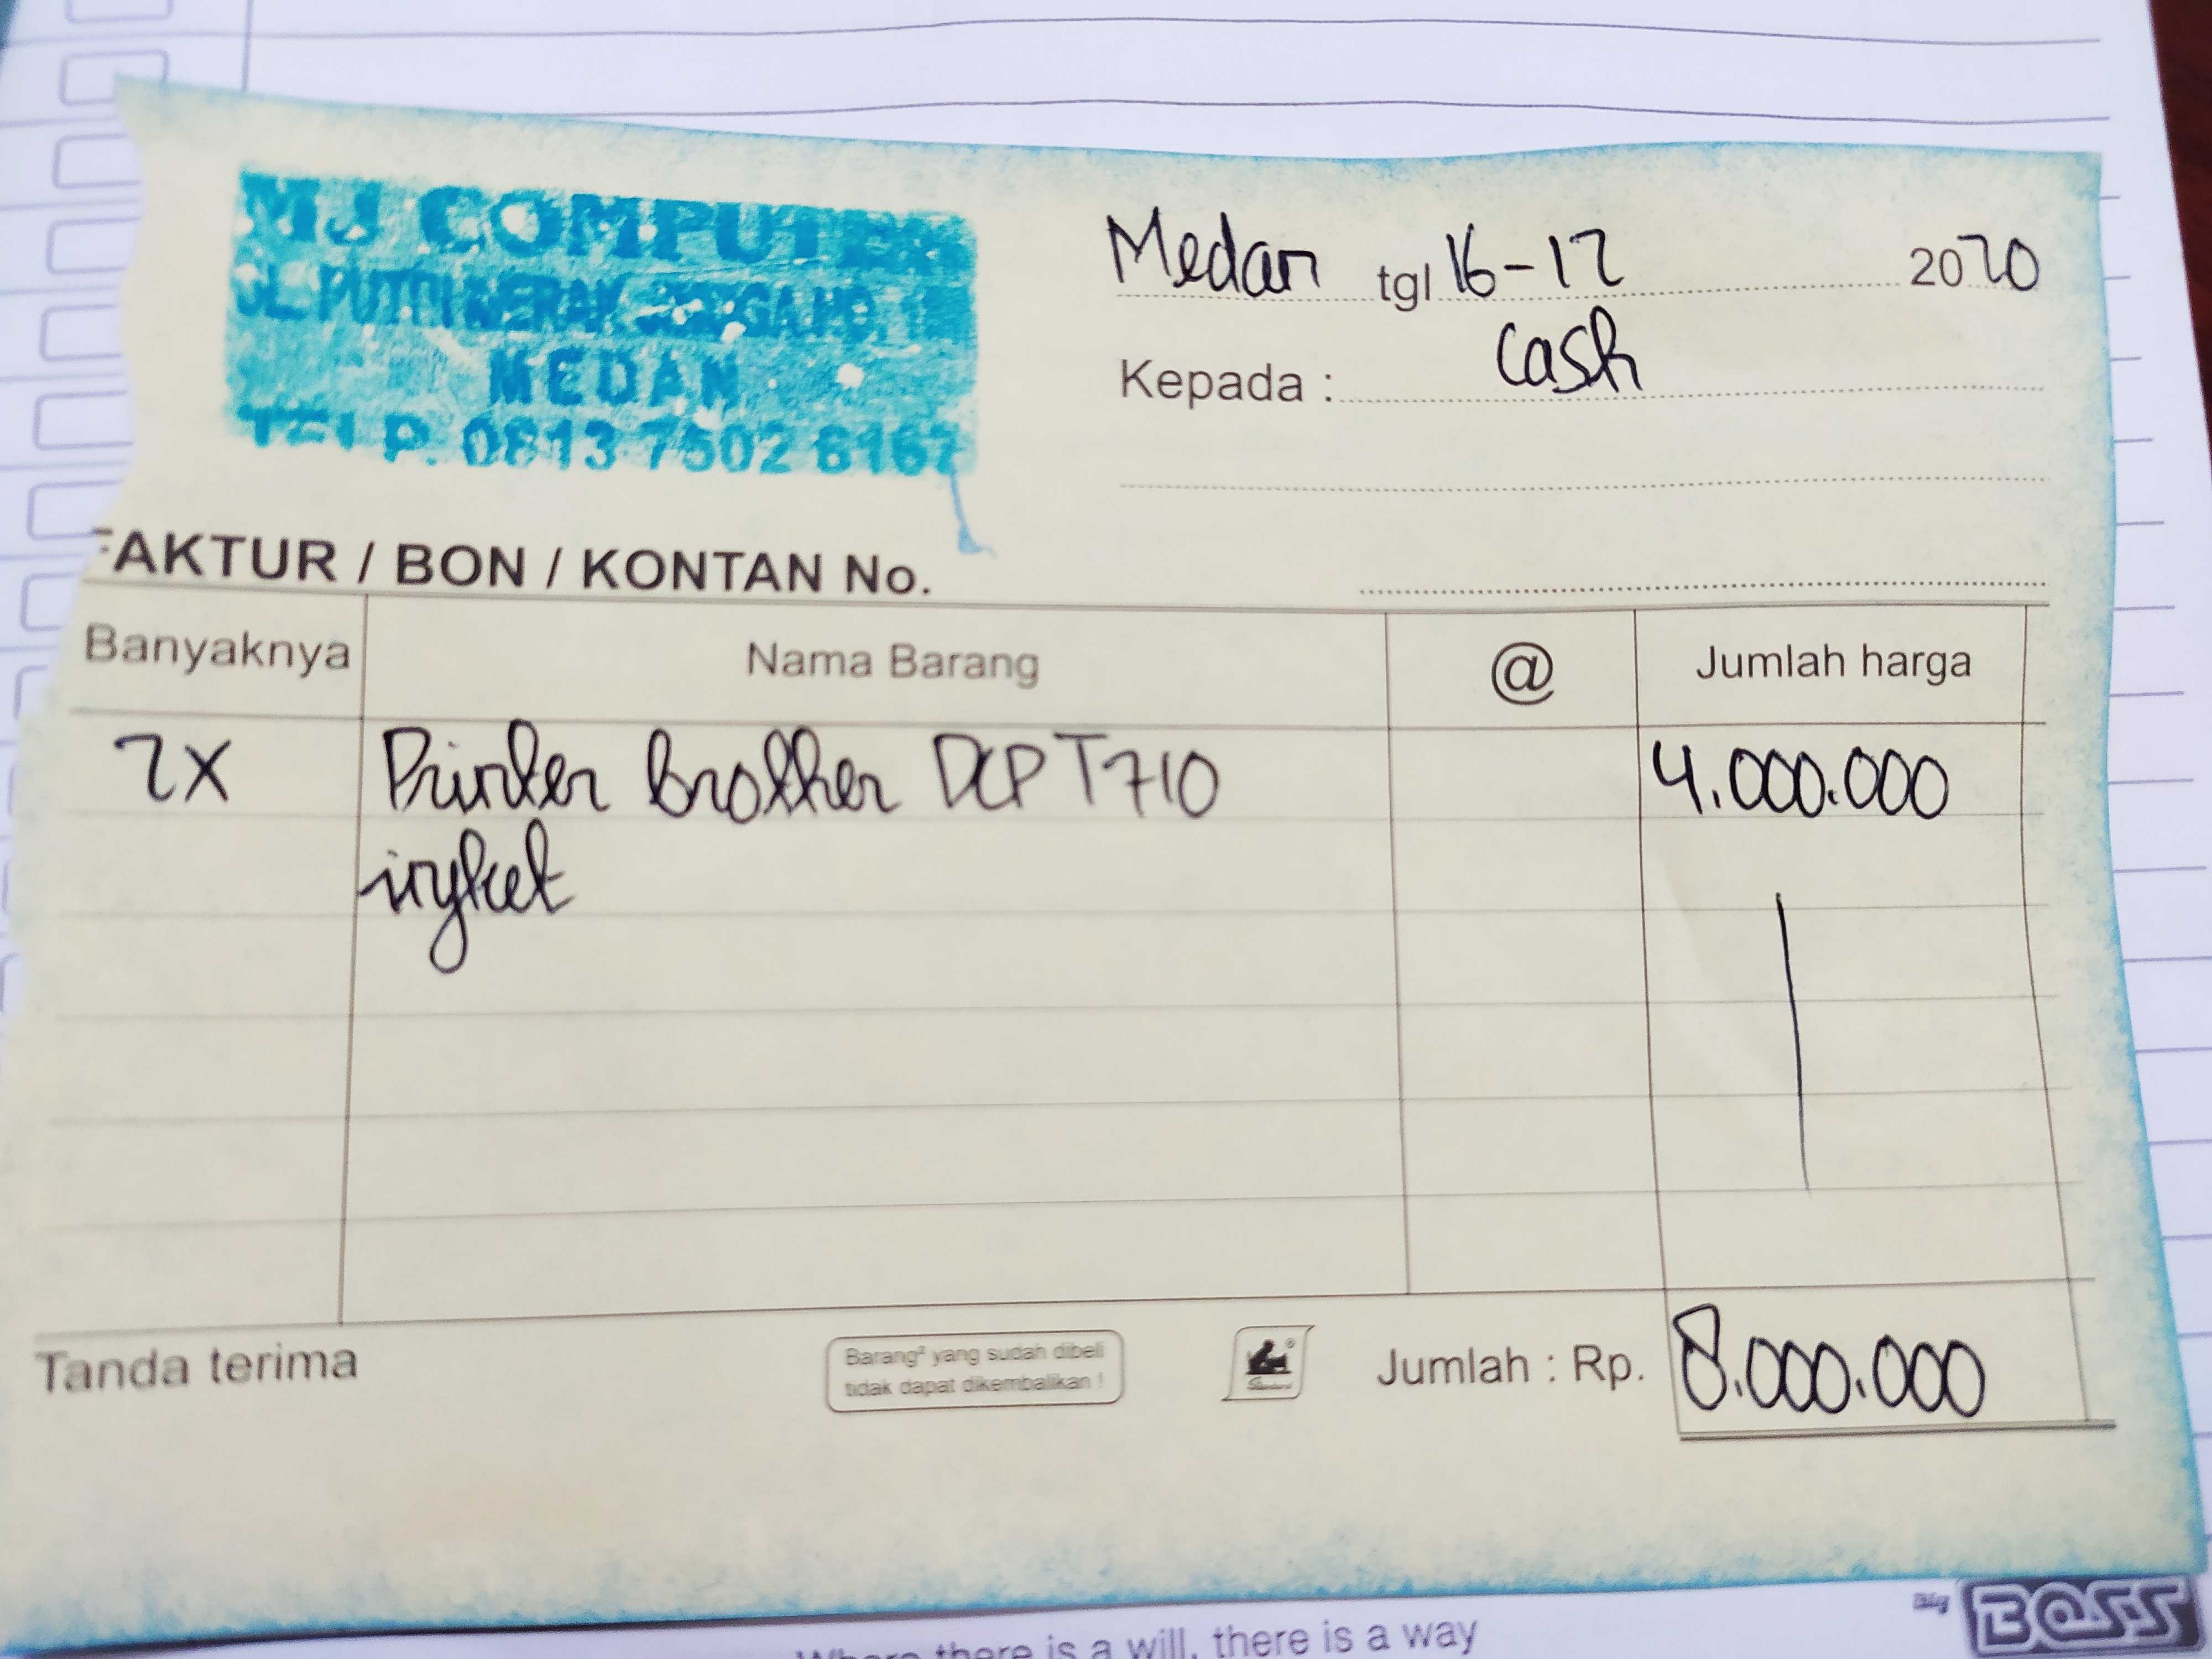 MJ COMPUTER
JL. PUTRI MERAK JINGGA NO.
MEDAN
TELP. 0813 7502 6167
Medan tgl 16-12 2020
Kepada : Cash
FAKTUR / BON / KONTAN No.
Banyaknya Nama Barang @ Jumlah harga
2X Printer Brother DCP T710 4.000.000
inkjet
Tanda terima
Barang² yang sudah dibeli
tidak dapat dikembalikan !
Standard
Jumlah : Rp. 8.000.000
Where there is a will, there is a way
Big BOSS